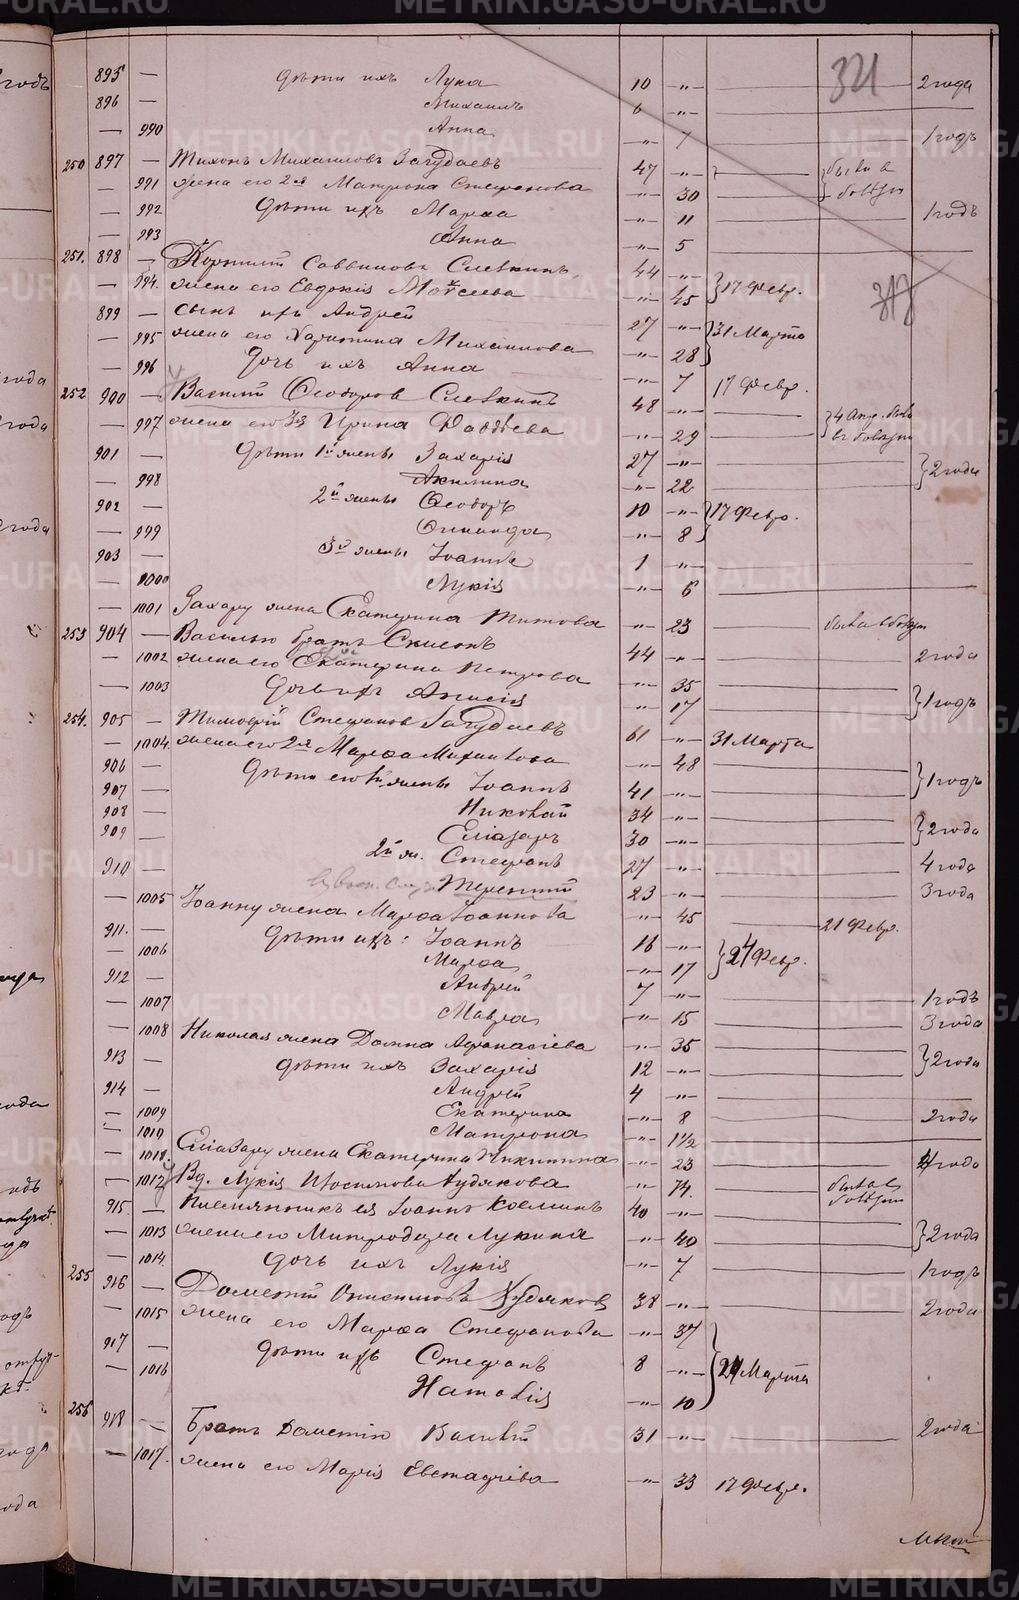 321
895 — Дѣти ихъ Лука 10 -„- 2 года
896 — Михаилъ 6 -„-
— 990 Анна -„- 7 1 годъ
250 897 — Тихонъ Михаиловъ Загудаевъ 47 -„- были в
— 991 жена его 2я Матрона Стефанова -„- 30 отъѣзди
— 992 Дѣти ихъ Марѳа -„- 11 1 годъ
— 993 Анна -„- 5
251. 898 — Корнилій Саввиновъ Слевкинъ 44 -„-
— 994. жена его Евдокія Моѵсеева -„- 45 17 Февр.
899 — сынъ ихъ Андрей 27 -„- 31 Марта
— 995 жена его Харитина Михаилова -„- 28
— 996 Дочь ихъ Анна -„- 7 17 Февр.
252 900 — Василій Ѳеодоров Слевкинъ 48 -„- 4 Апр. былъ
— 997 жена его 3я Ирина Давыдева -„- 29 въ отъѣзди
901 — Дѣти 1й жены Захарія 27 -„- 2 года
— 998 Акилина -„- 22
902 — 2й жены Ѳеодоръ 10 -„- 17 Февр.
— 999 -„- 8
903 — 3й жены Іоаннъ 1 -„-
— 1000 Лукія -„- 6
— 1001 Захару жена Екатерина Титова -„- 23 была въ отъѣзди
253 904 — Василью братъ Симеонъ 44 -„-
— 1002 жена его Екатерина Петрова -„- 35 2 года
— 1003 Дочь ихъ Анисія -„- 17 1 годъ
254. 905 — Тимофѣй Стефанов Загудаевъ 61 -„- 31 Марта
— 1004 жена его 2я Марѳа Михаилова -„- 48
906 — Дѣти его 1й жены Іоаннъ 41 -„- 1 годъ
907 — Николай 34 -„-
908 — Еліазаръ 30 -„- 2 года
909 — 2й ж. Стефанъ 27 -„- 4 года
910 — Терентій 23 -„- 3 года
— 1005 Іоанну жена Марѳа Іоаннова -„- 45 21 Февр.
911. — Дѣти ихъ: Іоаннъ 16 -„- 24 Февр.
— 1006 Марѳа -„- 17
912 — Андрей 7 -„- 1 годъ
— 1007 Мавра -„- 15 3 года
— 1008 Николая жена Домна Аѳанасіева -„- 35
913 — Дѣти ихъ Захарія 12 -„- 2 года
914 — Андрей 4 -„-
— 1009 Екатерина -„- 8 2 года
— 1010 Матрона -„- 1½
— 1011. Еліазару жена Екатерина Никитина -„- 23 4 года
— 1012 Вд. Лукія Іосипова Худякова -„- 74. была въ отъѣзди
915. — Племянникъ ея Іоаннъ Космин 40 -„-
— 1013 жена его Митродора Лукина -„- 40 2 года
— 1014. Дочь ихъ Лукія -„- 7 1 годъ
255 916 — Дометій Онисимовъ Худяков 38 -„- 2 года
— 1015 жена его Марѳа Стефанова -„- 37
917 — Дѣти ихъ Стефанъ 8 -„- 24 Марта
— 1016 Наталія -„- 10
256 918 — Братъ Дометію Василій 31 -„- 2 года
— 1017. жена его Марія Евстафіева -„- 33 17 Февр.